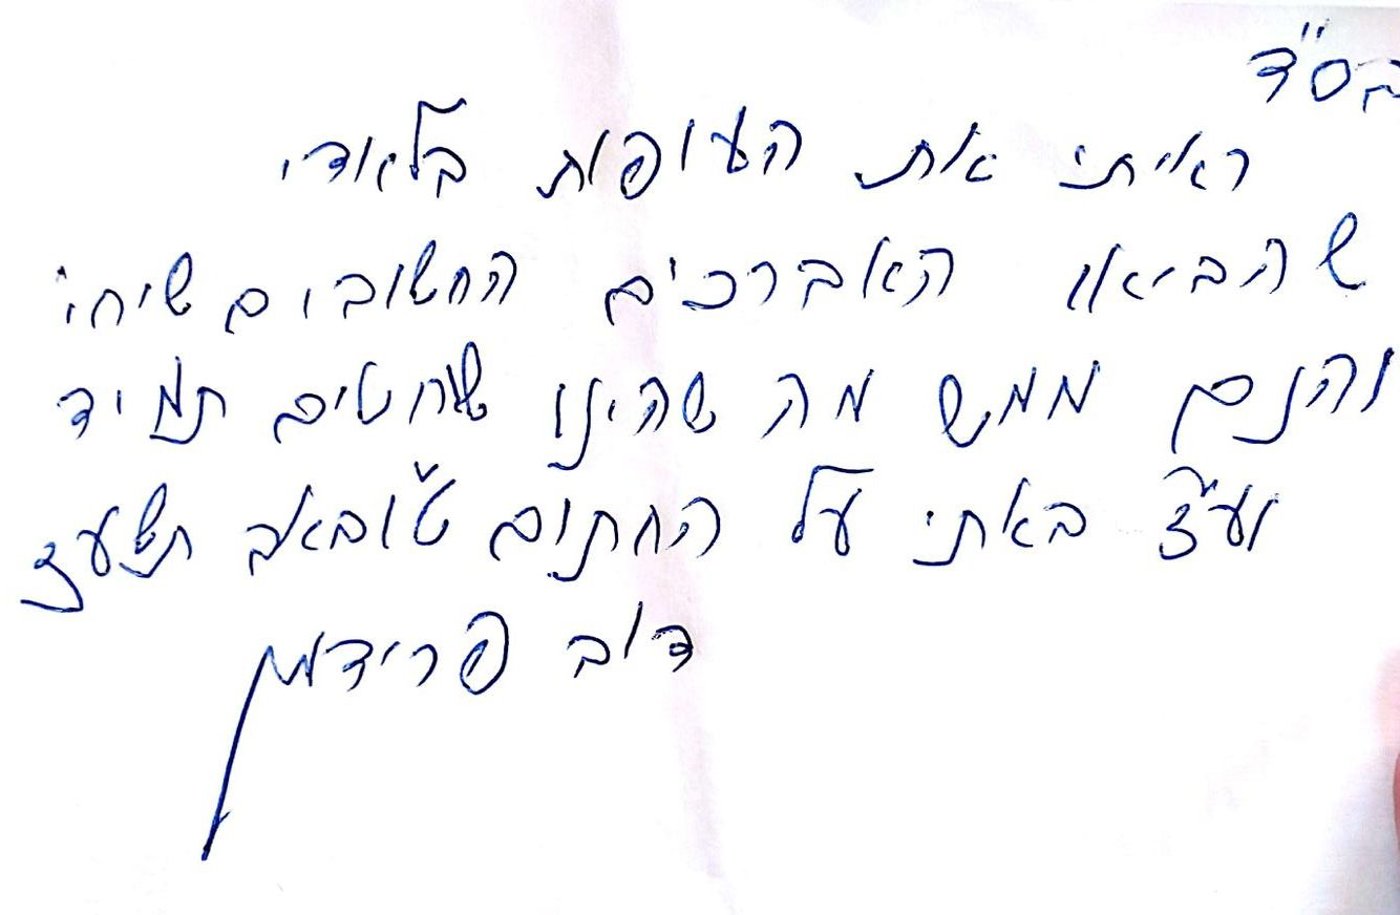 בס"ד
ראיתי את העופות בלאודי
שהביאו האברכים החשובים שיחי'
והנם ממש מה שהיינו שוחטים תמיד
וע"ז באתי על החתום ט"ו באב תשעז
דוב פרידמן